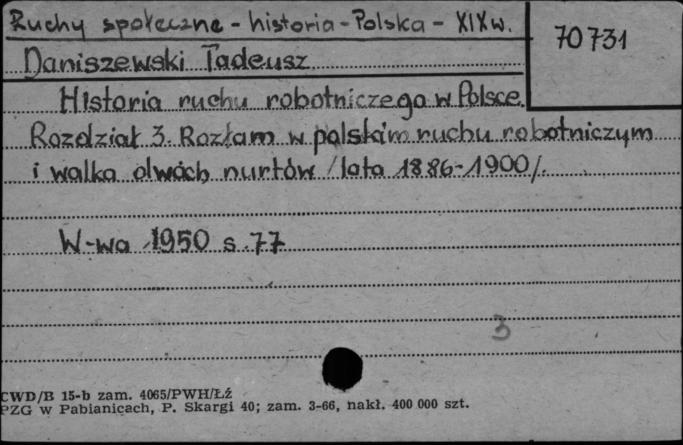 Ruchy społeczne - historia - Polska - XIX w.
70731
Daniszewski Tadeusz
Historia ruchu robotniczego w Polsce.
Rozdział 3. Rozłam w polskim ruchu robotniczym
i walka dwóch nurtów /lata 1886-1900/.
W-wa 1950 s. 77
3
CWD/B 15-b zam. 4065/PWH/Łź
PZG w Pabianicach, P. Skargi 40; zam. 3-66, nakł. 400 000 szt.